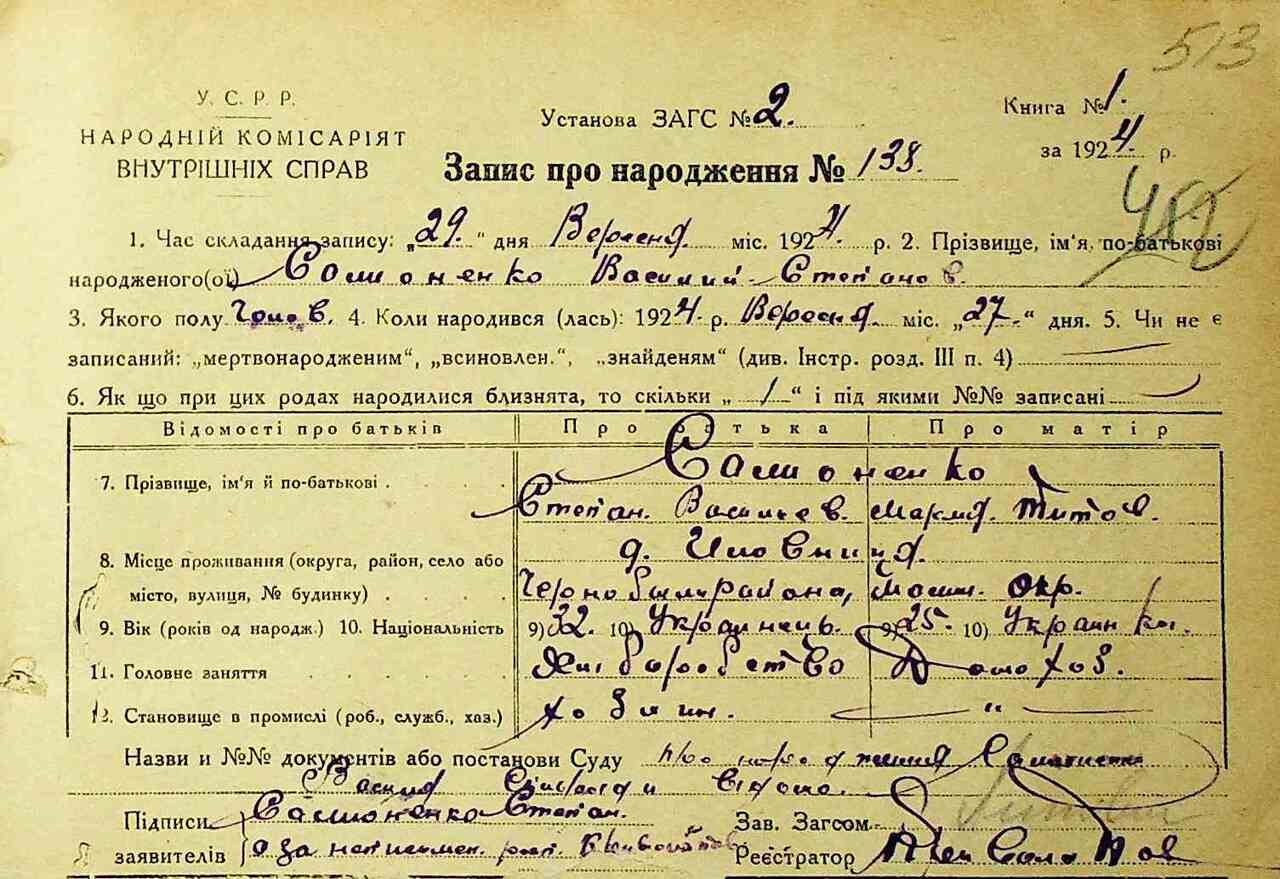 513
У. С. Р. Р.
НАРОДНІЙ КОМІСАРІЯТ
ВНУТРІШНІХ СПРАВ
Установа ЗАГС № 2.
Книга № 1.
за 1924 р.
Запис про народження № 138.
482
1. Час складання запису: „29." дня Вересня міс. 1924. р. 2. Прізвище, ім'я, по-батькові
народженого(ої) Самоненко Василий Степанов.
3. Якого полу Чолов. 4. Коли народився (лась): 1924 р. Вересня міс. „27." дня. 5. Чи не є
записаний: „мертвонародженим", „всиновлен.", „знайденям" (див. Інстр. розд. III п. 4)
6. Як що при цих родах народилися близнята, то скільки „1" і під якими №№ записані
Відомості про батьків Про батька Про матір
7. Прізвище, ім'я й по-батькові Самоненко
Степан Васильев. Титов.
8. Місце проживання (округа, район, село або
місто, вулиця, № будинку) района, окр.
9. Вік (років од народж.) 10. Національність 9) 32. 10) Украинець. 9) 25. 10) Украинка.
11. Головне заняття Хлиборобство Домохоз.
12. Становище в промислі (роб., служб., хаз.) хозяин. "
Назви и №№ документів або постанови Суду про
Підписи Самоненко Степан.
заявителів а за неписмен. рос.
Зав. Загсом
Реєстратор